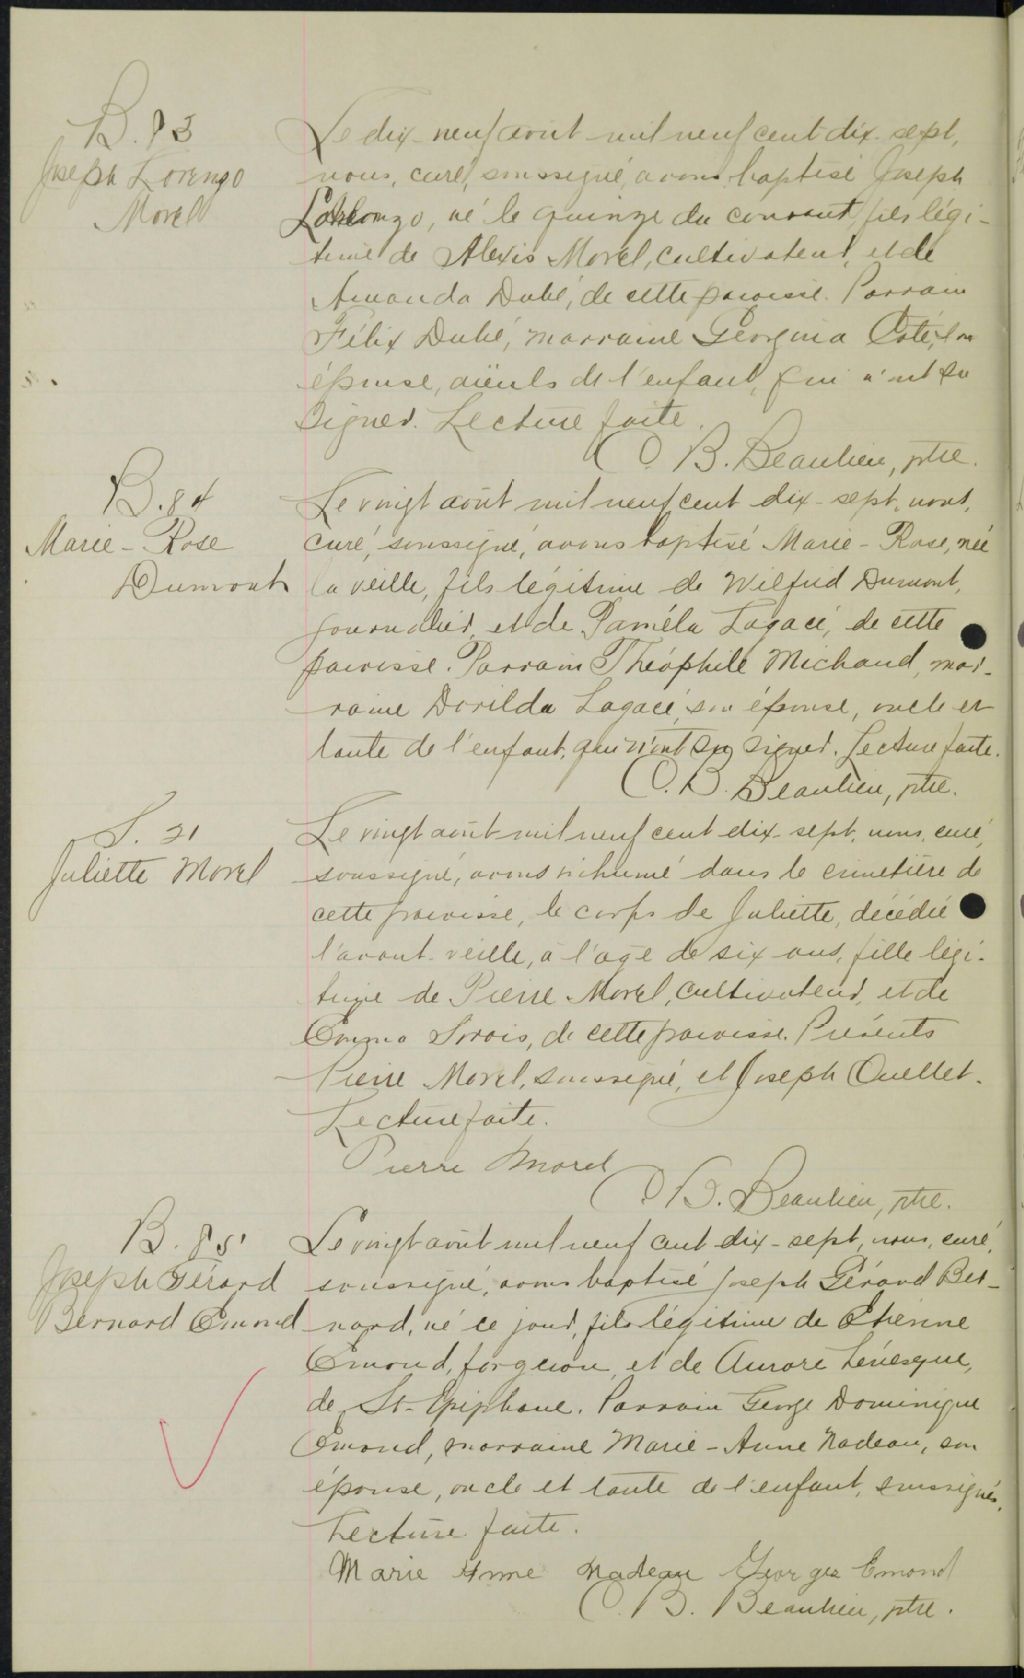 B. 83
Joseph Lorenzo
Morel
Le dix-neuf août mil neuf cent dix-sept,
nous, curé, soussigné, avons baptisé Joseph
Lorenzo, né le quinze du courant, fils légi-
time de Alexis Morel, cultivateur, et de
Amanda Dubé, de cette paroisse. Parrain
Félix Dubé, marraine Georgina Coté, son
épouse, aïeuls de l'enfant, qui n'ont su
signer. Lecture faite.
C. B. Beaulieu, ptre.
B. 84
Marie-Rose
Dumont
Le vingt août mil neuf cent dix-sept, nous,
curé, soussigné, avons baptisé Marie-Rose, née
la veille, fils légitime de Wilfrid Dumont,
journalier, et de Paméla Lagacé, de cette
paroisse. Parrain Théophile Michaud, mar-
raine Dorilda Lagacé, son épouse, oncle et
tante de l'enfant, qui n'ont su signer. Lecture faite.
C. B. Beaulieu, ptre.
S. 21
Juliette Morel
Le vingt août mil neuf cent dix-sept, nous, curé,
soussigné, avons inhumé dans le cimetière de
cette paroisse, le corps de Juliette, décédée
l'avant-veille, à l'age de six ans, fille légi-
time de Pierre Morel, cultivateur, et de
Emma Sirois, de cette paroisse. Présents
Pierre Morel, soussigné, et Joseph Ouellet.
Lecture faite.
Pierre Morel
C. B. Beaulieu, ptre.
B. 85
Joseph Gérard
Bernard Emond
Le vingt août mil neuf cent dix-sept, nous, curé,
soussigné, avons baptisé Joseph Gérard Ber-
nard, né ce jour, fils légitime de Etienne
Emond, forgeron, et de Aurore Lévesque,
de St-Epiphane. Parrain George Dominique
Emond, marraine Marie-Anne Nadeau, son
épouse, oncle et tante de l'enfant, soussignés.
Lecture faite.
Marie Anne Nadeau Georges Emond
C. B. Beaulieu, ptre.